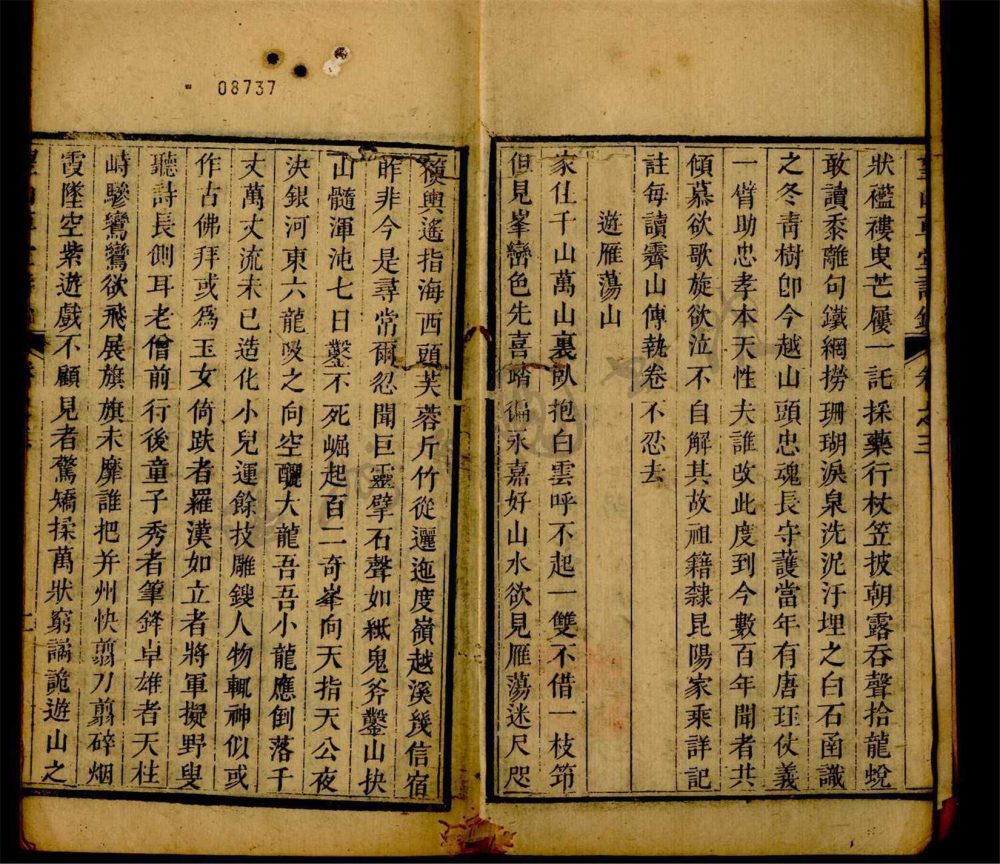 狀襤褸曳芒屨一託採藥行杖笠披朝露吞聲拾龍蛻
敢讀黍離句鐵網撈珊瑚淚泉洗沉汙埋之白石函識
之冬青樹卽今越山頭忠魂長守護當年有唐玨仗義
一臂助忠孝本天性夫誰改此度到今數百年聞者共
傾慕欲歌旋欲泣不自解其故祖籍隸昆陽家乘詳記
註每讀霽山傳執卷不忍去
遊雁蕩山
家住千山萬山裏臥抱白雲呼不起一雙不借一枝笻
但見峯巒色先喜踏徧永嘉好山水欲見雁蕩迷尺咫
08737
輿遙指海西頭芙蓉斤竹從邐迤度嶺越溪幾信宿
昨非今是尋常爾忽聞巨靈擘石聲如紙鬼斧鑿山抉
山髓渾沌七日鑿不死崛起百二奇峯向天指天公夜
決銀河東六龍吸之向空灑大龍吾吾小龍應倒落千
丈萬丈流未已造化小兒運餘技雕鎪人物輒神似或
作古佛拜或爲玉女倚趺者羅漢如立者將軍擬野叟
聽詩長側耳老僧前行後童子秀者筆鋒卓雄者天柱
峙驂鸞鸞欲飛展旗旗未靡誰把并州快翦刀翦碎烟
霞墜空紫遊戲不顧見者驚矯揉萬狀窮譎詭遊山之